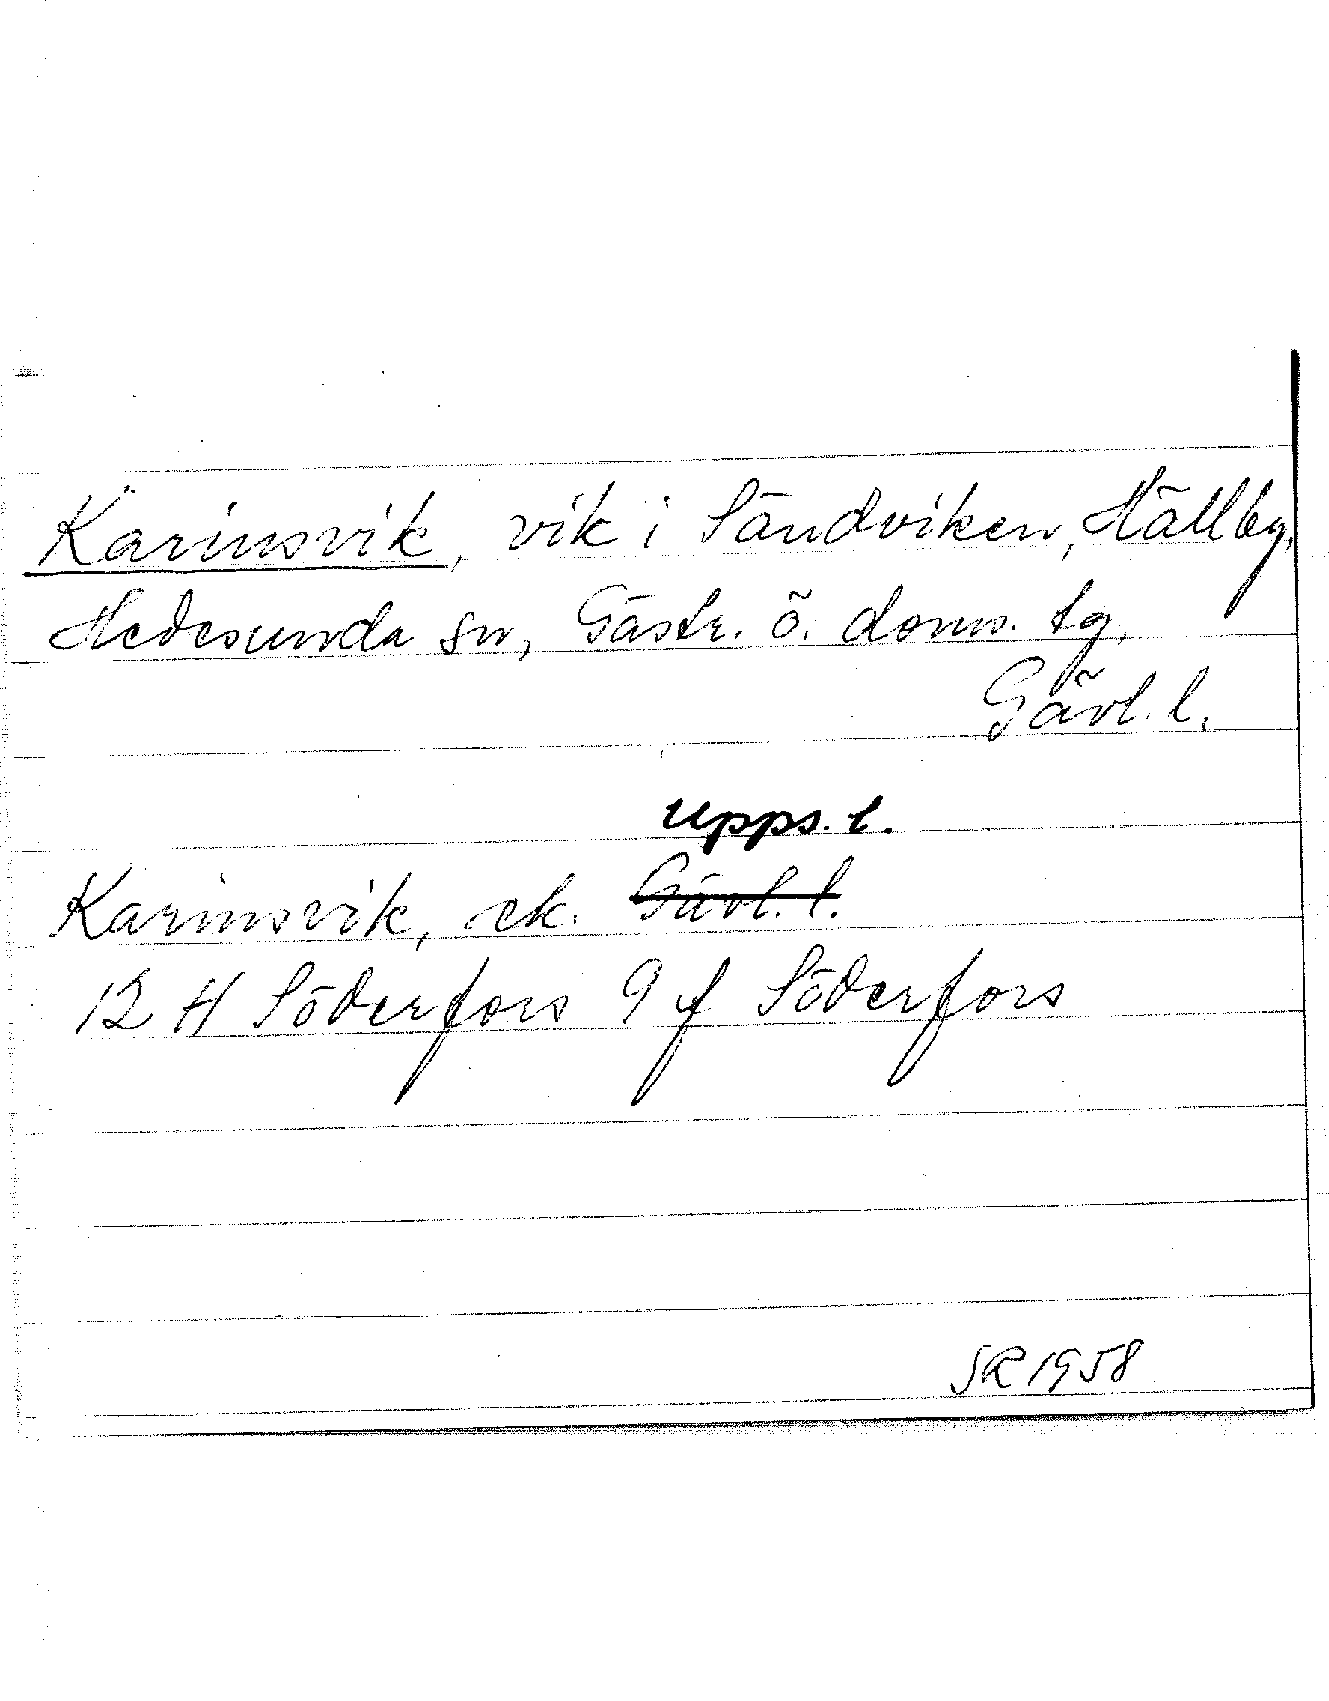 Karinsvik, vik i Sandviken, Hällby,
Hedesunda sn, Gästr. ö. doms. tg,
Gävl. l.
Upps. l.
Karinsvik, ek. Gävl. l.
12 H Söderfors 9 f Söderfors
SR 1958